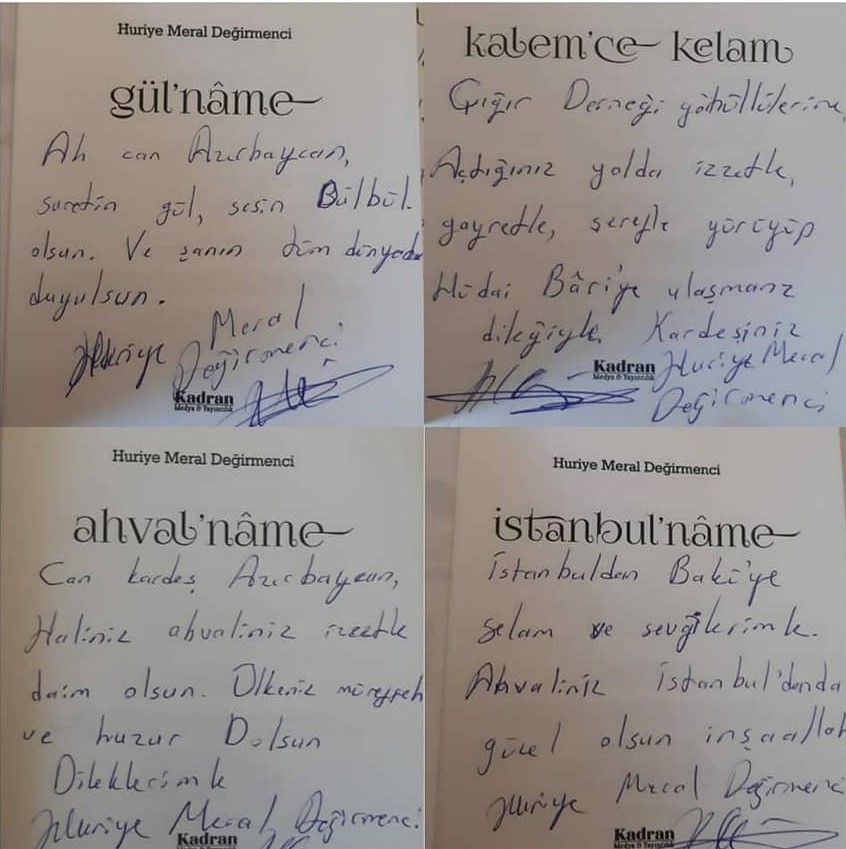 Huriye Meral Değirmenci
gül'nâme
Ah can Azerbaycan,
suretin gül, sesin Bülbül
olsun. Ve şanın tüm dünyada
duyulsun.
Huriye Meral
Değirmenci
Kadran
Medya & Yayıncılık
kalem'ce kelam
Çığır Derneği gönüllülerine,
Açtığınız yolda izzetle,
gayretle, şerefle yürüyüp
Hüdai Bâri'ye ulaşmanız
dileğiyle. Kardeşiniz
Huriye Meral
Değirmenci
Kadran
Medya & Yayıncılık
Huriye Meral Değirmenci
ahval'nâme
Can kardeş Azerbaycan,
Haliniz ahvaliniz izzetle
daim olsun. Ülkeniz müreffeh
ve huzur Dolsun
Dileklerimle
Huriye Meral Değirmenci
Kadran
Huriye Meral Değirmenci
istanbul'nâme
İstanbuldan Bakü'ye
selam ve sevgilerimle.
Ahvaliniz İstanbul'danda
güzel olsun inşaallah
Huriye Meral Değirmenci
Kadran
Medya & Yayıncılık